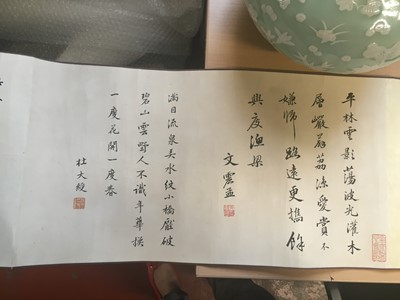 平林雲影蕩波光灌木
層巖薜荔涼愛賞不
嫌歸路遠更攜餘
興度漁梁
文震孟
滿目流泉水紋小橋壓破
碧山雲野人不識年華換
一度花開一度春
杜大綬